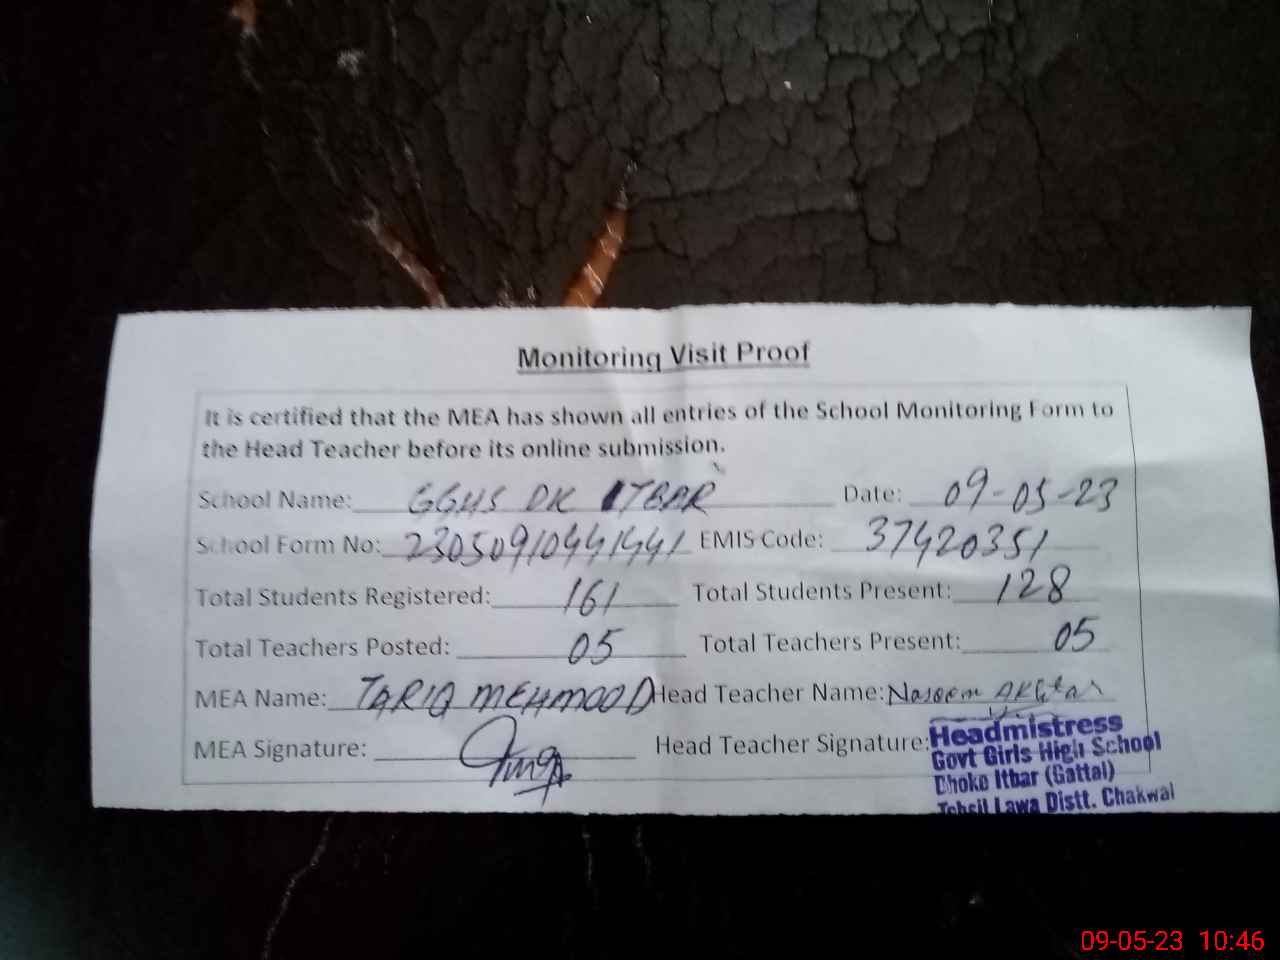 Monitoring Visit Proof
It is certified that the MEA has shown all entries of the School Monitoring Form to
the Head Teacher before its online submission.
School Name: GGHS DK ITBAR Date: 09-05-23
School Form No: 23050910441441 EMIS Code: 37420351
Total Students Registered: 161 Total Students Present: 128
Total Teachers Posted: 05 Total Teachers Present: 05
MEA Name: TARIQ MEHMOOD Head Teacher Name: Naseem Akhtar
MEA Signature: Head Teacher Signature:
Headmistress
Govt Girls High School
Dhoke Itbar (Gattal)
Tehsil Lawa Distt. Chakwal
09-05-23 10:46